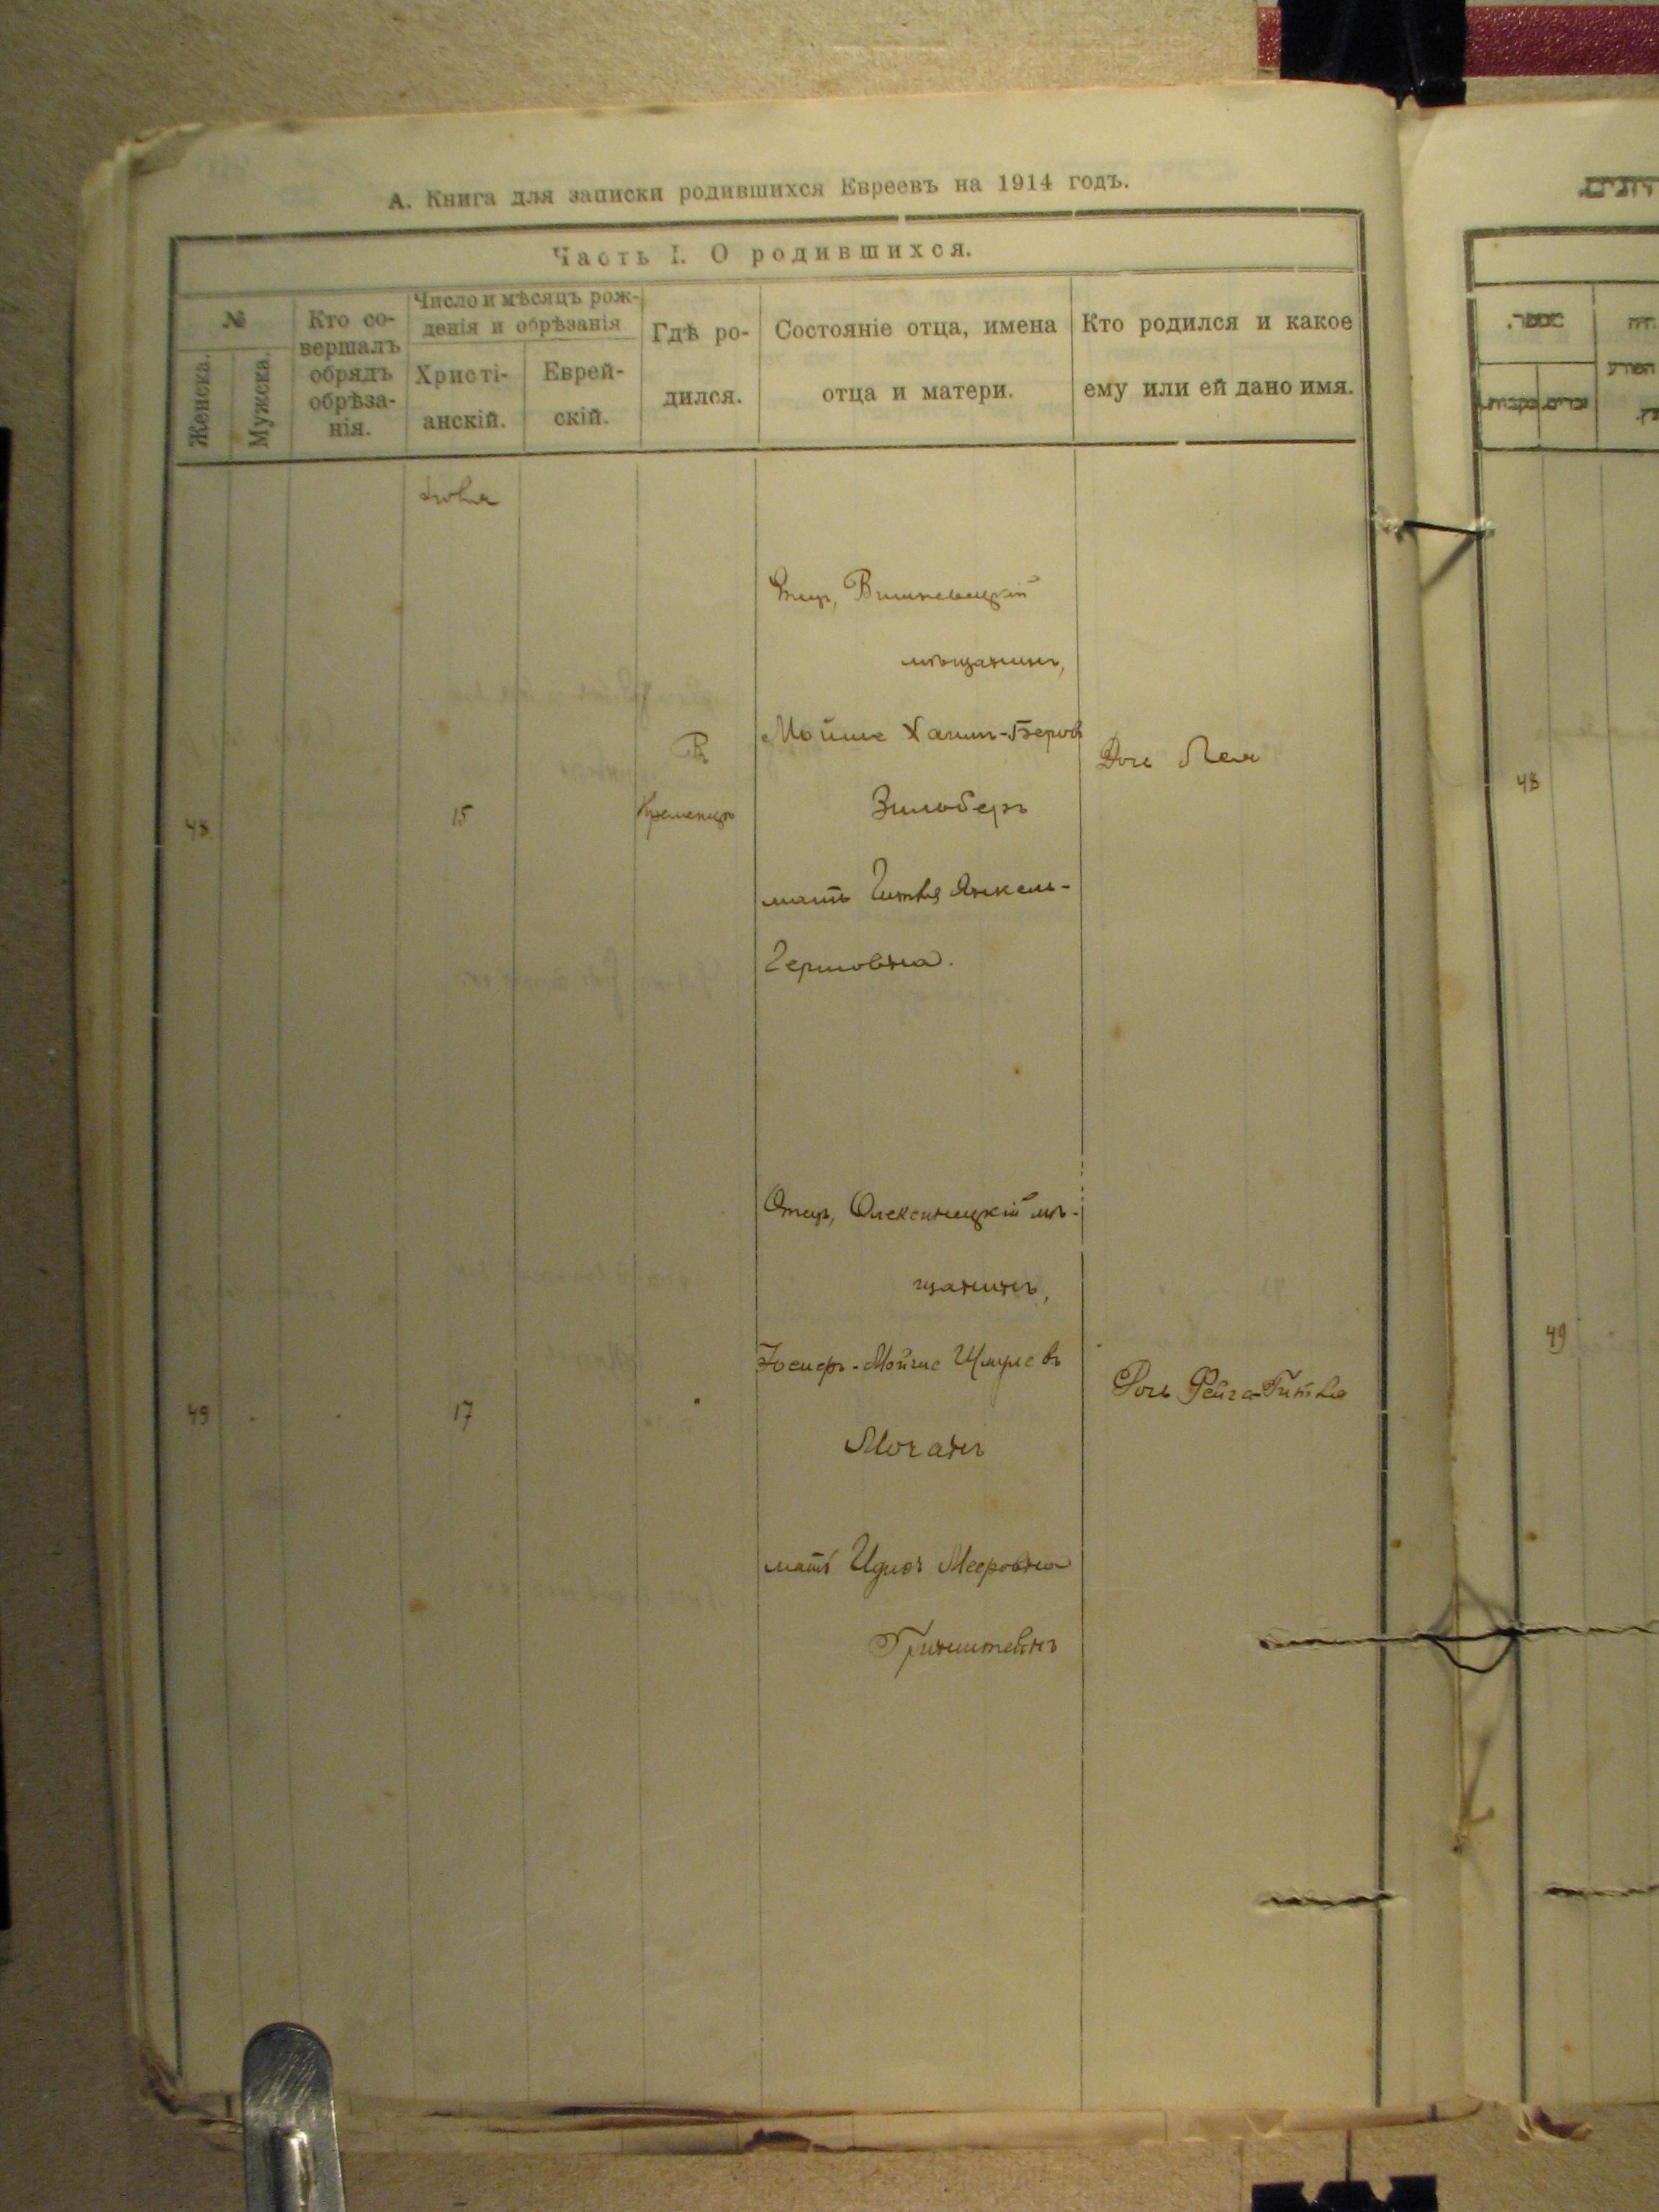 А. Книга для записки родившихся Евреевъ на 1914 годъ.
Часть I. О родившихся.
№
Женска.
Мужска.
Кто со-
вершалъ
обрядъ
обрѣза-
нія.
Число и мѣсяцъ рож-
денія и обрѣзанія
Христі-
анскій.
Еврей-
скій.
Гдѣ ро-
дился.
Состояніе отца, имена
отца и матери.
Кто родился и какое
ему или ей дано имя.
Отецъ, Вишневецкій
мѣщанинъ,
Мойше Хаимъ-Беровъ
Зильберъ
мать Гитля Янкель-
Гершовна.
48
15
В
Кременцѣ
Дочь Лея
Отецъ, Олексинецкій мѣ-
щанинъ,
Іосифъ-Мойше Шмулевъ
Мочанъ
мать Идись Мееровна
Гринштейнъ
49
17
Дочь Фейга-Гитля
48
49